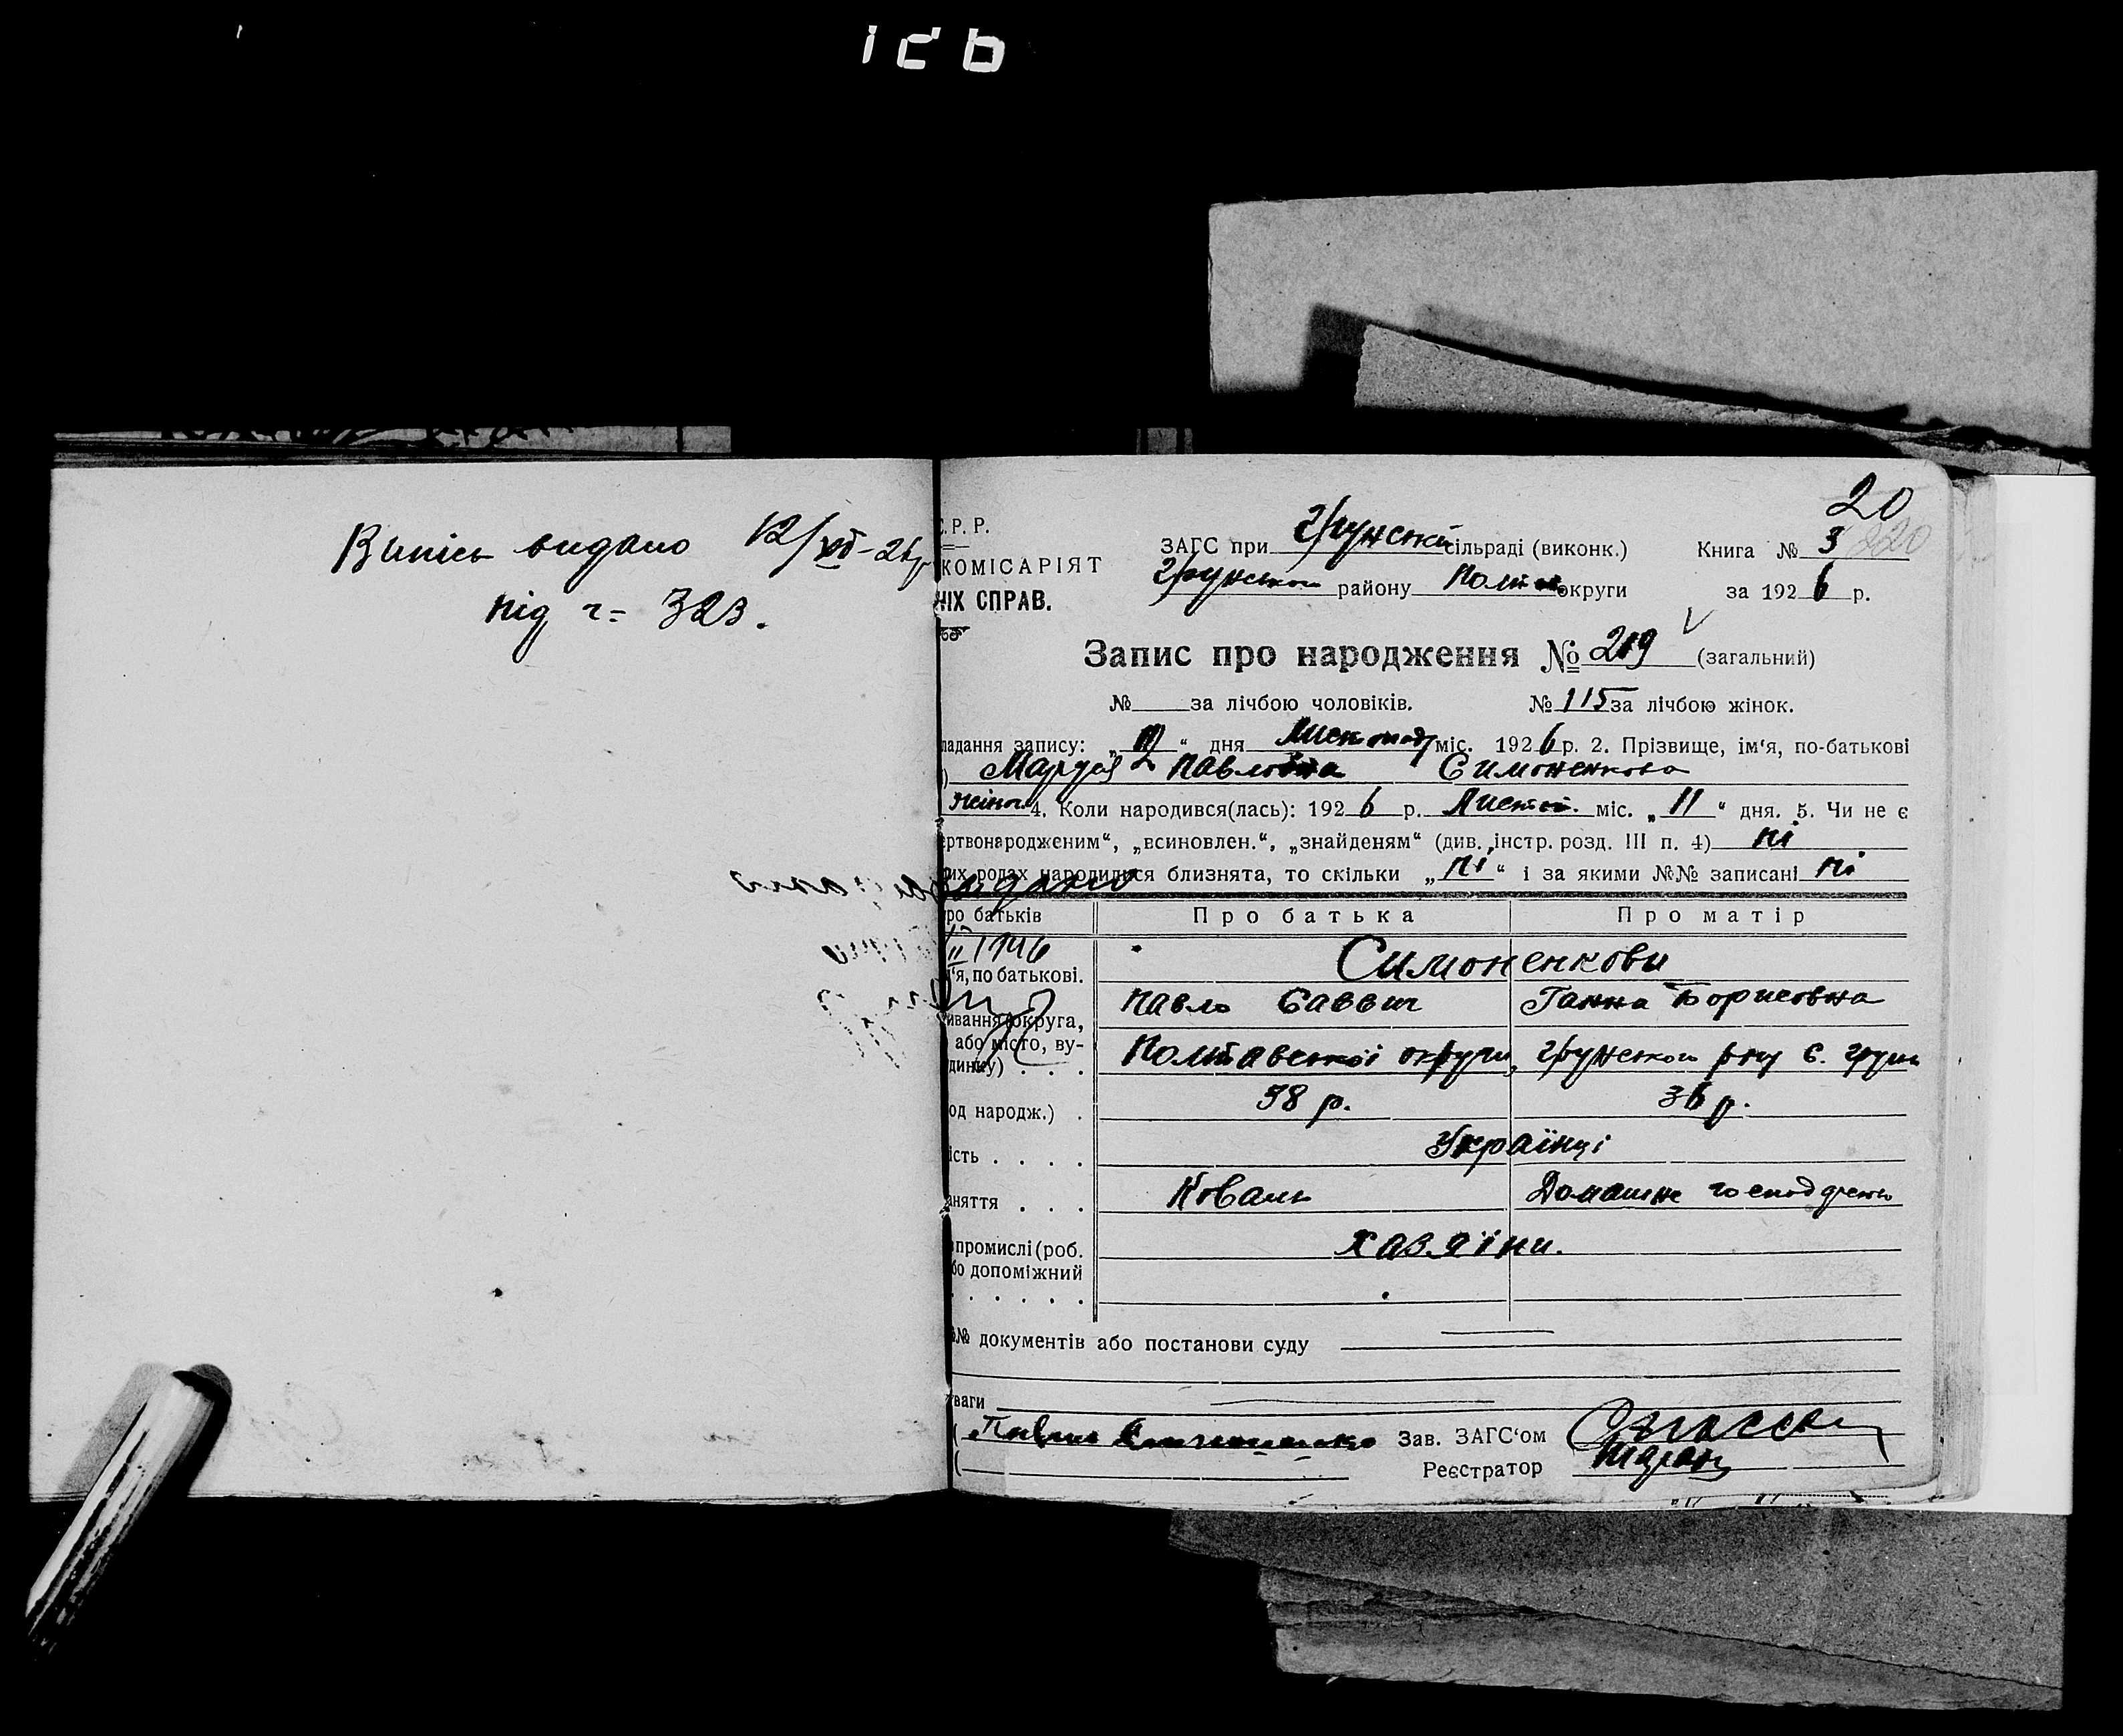 Випісь видано 12/XII-26р
під ч= 323.
20
220
С.Р.Р.
КОМІСАРІЯТ
НІХ СПРАВ.
ЗАГС при Грунські сільраді (виконк.) Книга № 3
Грунського району Полтав округи за 1926 р.
Запис про народження № 219 (загальний)
№ за лічбою чоловіків. № 115 за лічбою жінок.
ладання запису: „12“ дня Листопад міс. 1926 р. 2. Прізвище, ім‘я, по-батькові
) Маруся Павловна Симоненкова
жіноч 4. Коли народився(лась): 1926 р. Листоп. міс. „11“ дня. 5. Чи не є
ертвонародженим“, „всиновлен.“, „знайденям“ (див. інстр. розд. III п. 4) ні
их родах народилися близнята, то скільки „ні“ і за якими №№ записані ні
видано
ро батьків Про батька Про матір
II 1946
Симоненкови
‘я, по батькові.
Павло Саввич Ганна Борисовна
ивання (округа,
або місто, ву-
динку) . . . Полтавської округи, Грунського р-ну с. Грунь
од народж.) . 38 р. 36 р.
ість . . . . Українці
аняття . . . Коваль Домашнє господарств
промислі (роб. хазяїни.
бо допоміжний
. . . . . .
№ документів або постанови суду
уваги
( Павло Симоненко Зав. ЗАГС‘ом
( Реєстратор